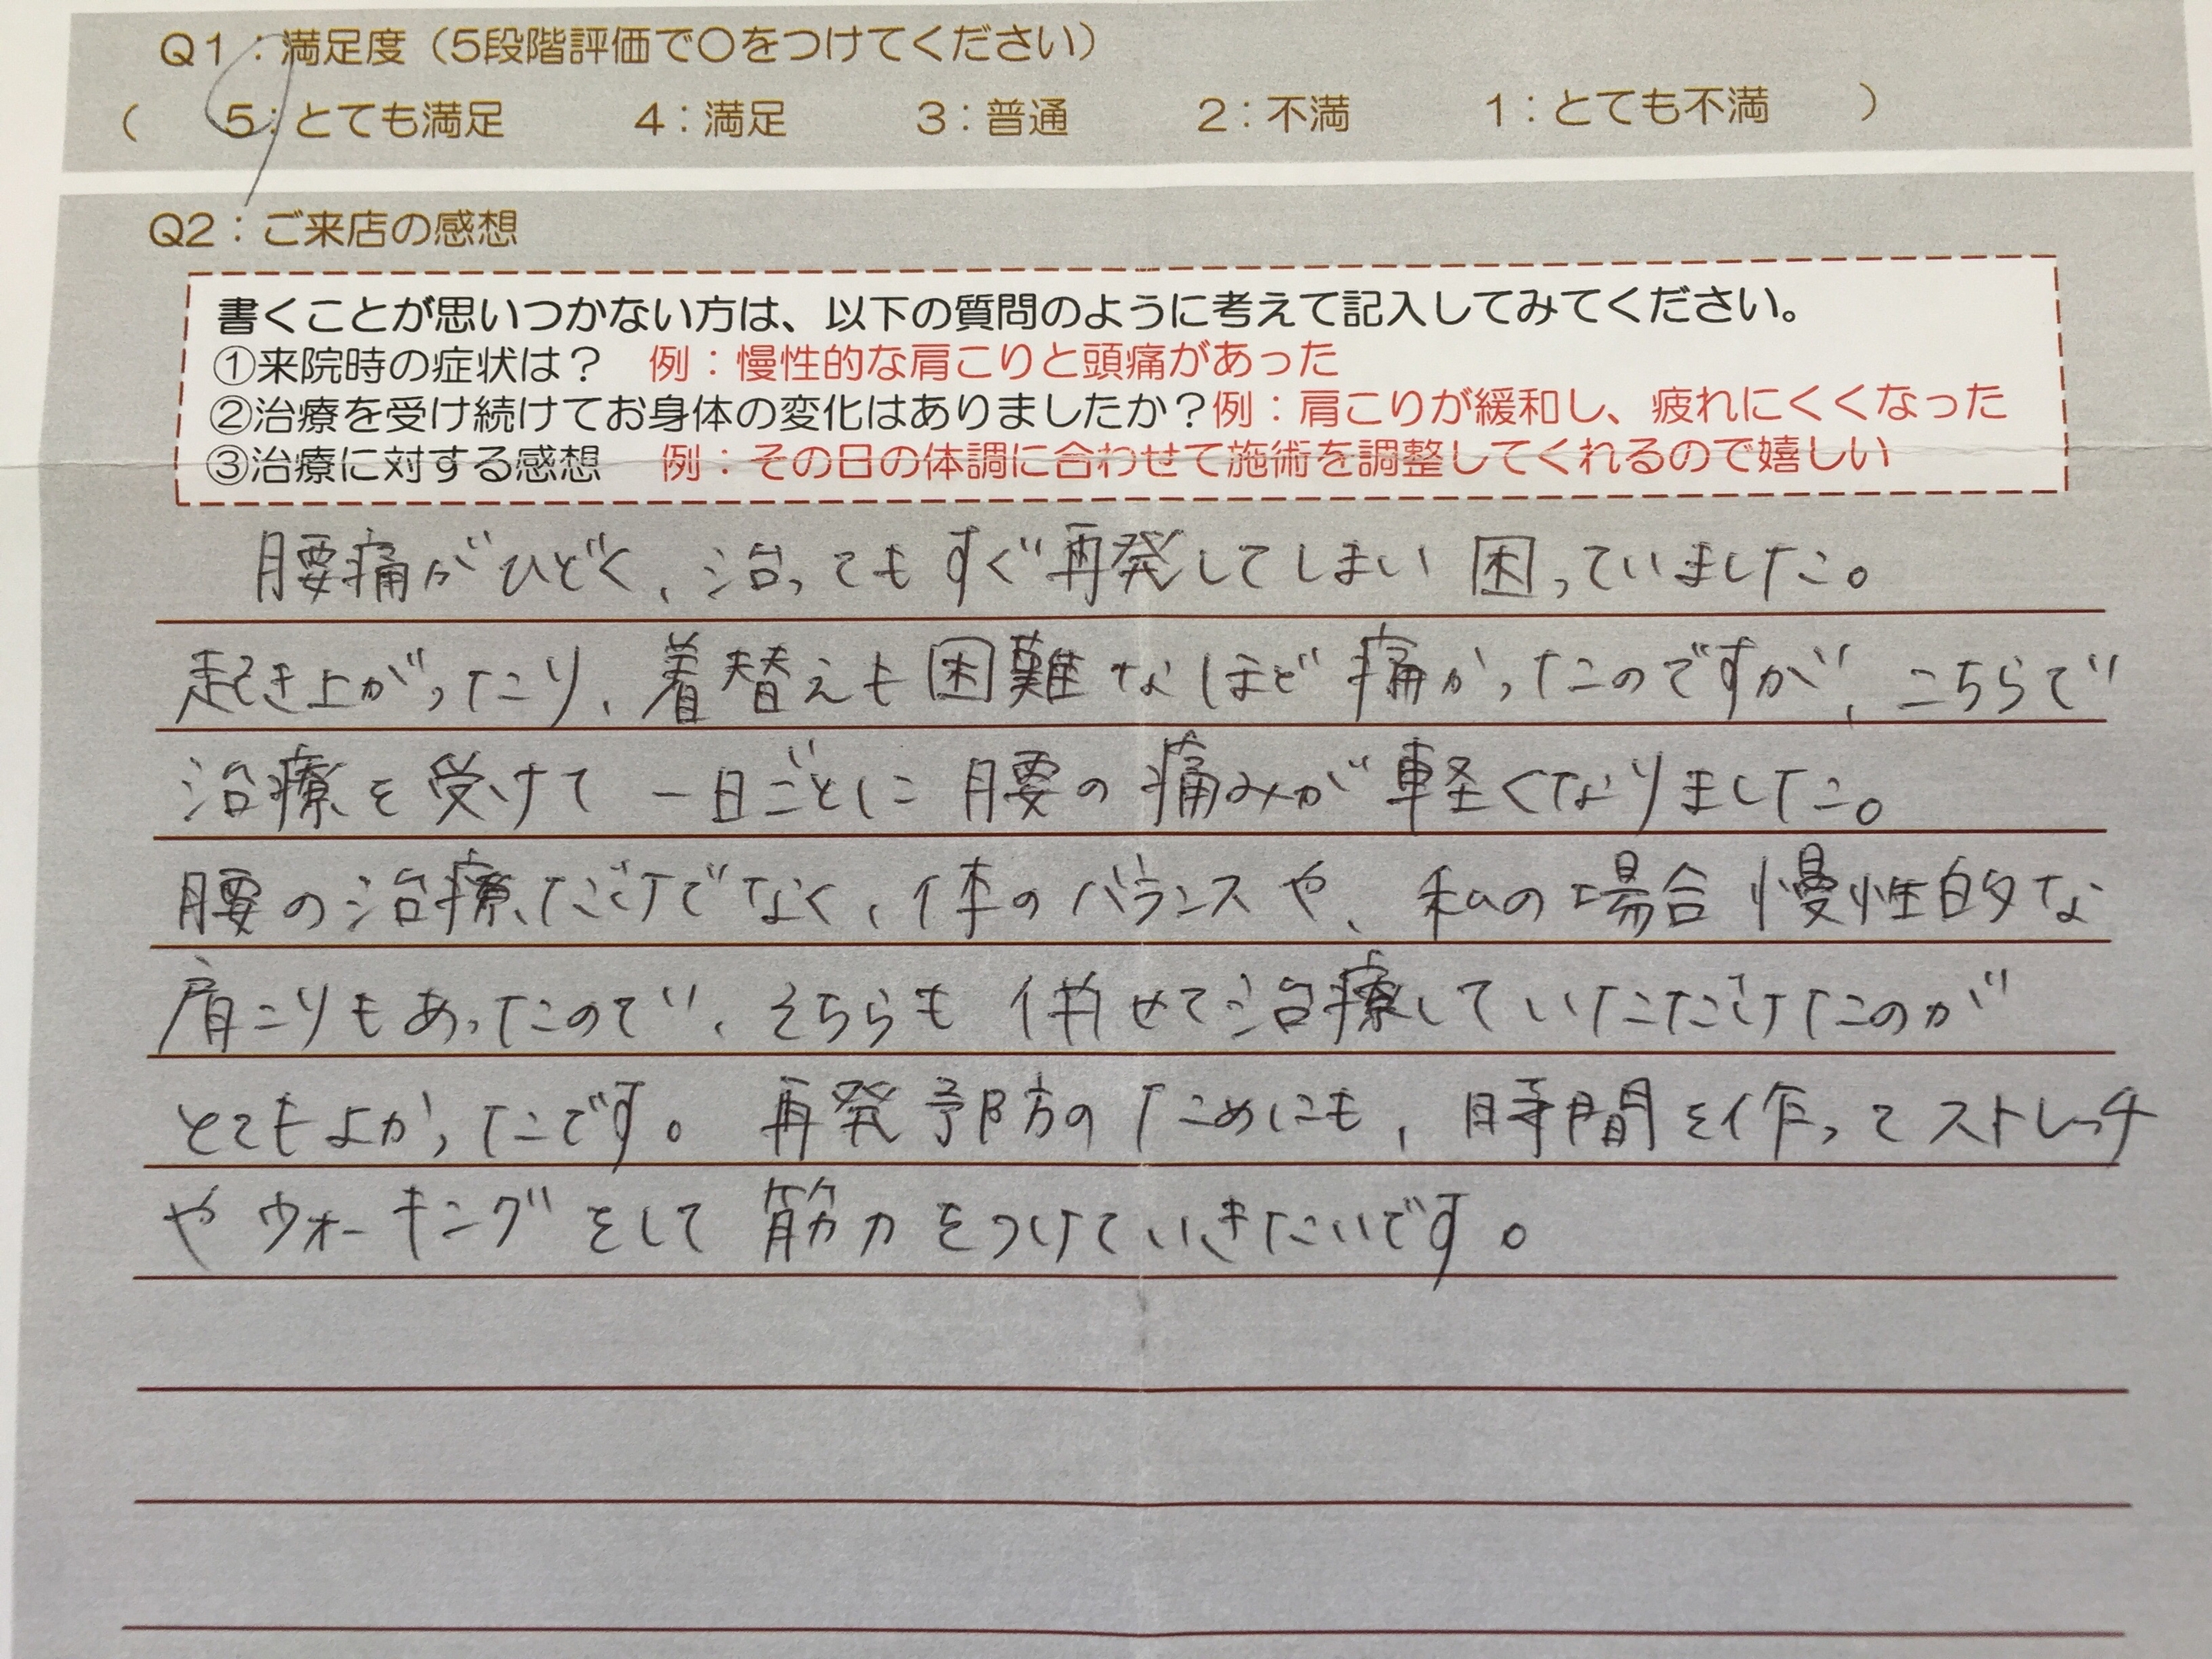 Q1：満足度（5段階評価で〇をつけてください）
（ 5：とても満足 4：満足 3：普通 2：不満 1：とても不満 ）
Q2：ご来店の感想
書くことが思いつかない方は、以下の質問のように考えて記入してみてください。
①来院時の症状は？ 例：慢性的な肩こりと頭痛があった
②治療を受け続けてお身体の変化はありましたか？例：肩こりが緩和し、疲れにくくなった
③治療に対する感想 例：その日の体調に合わせて施術を調整してくれるので嬉しい
腰痛がひどく、治ってもすぐ再発してしまい困っていました。
起き上がったり、着替えも困難なほど痛かったのですが、こちらで
治療を受けて一日ごとに腰の痛みが軽くなりました。
腰の治療だけでなく、体のバランスや、私の場合慢性的な
肩こりもあったので、そちらも併せて治療していただけたのが
とてもよかったです。再発予防のためにも、時間を作ってストレッチ
やウォーキングをして筋力をつけていきたいです。